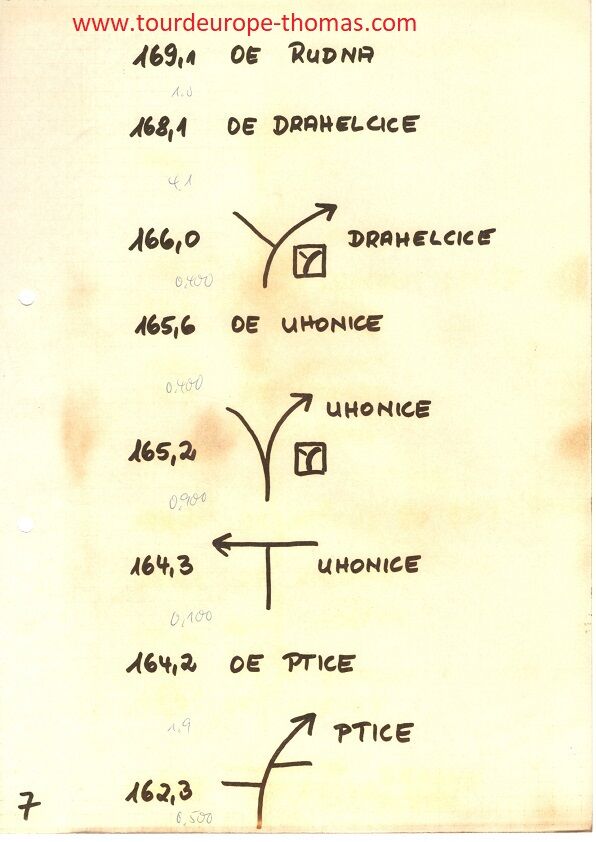 www.tourdeurope-thomas.com
169,1 OE RUDNA
1.0
168,1 OE DRAHELCICE
4.1
166,0 DRAHELCICE
0,400
165,6 OE UHONICE
0.400
165,2 UHONICE
0,900
164,3 UHONICE
0,100
164,2 OE PTICE
1.9
162,3 PTICE
0,500
7